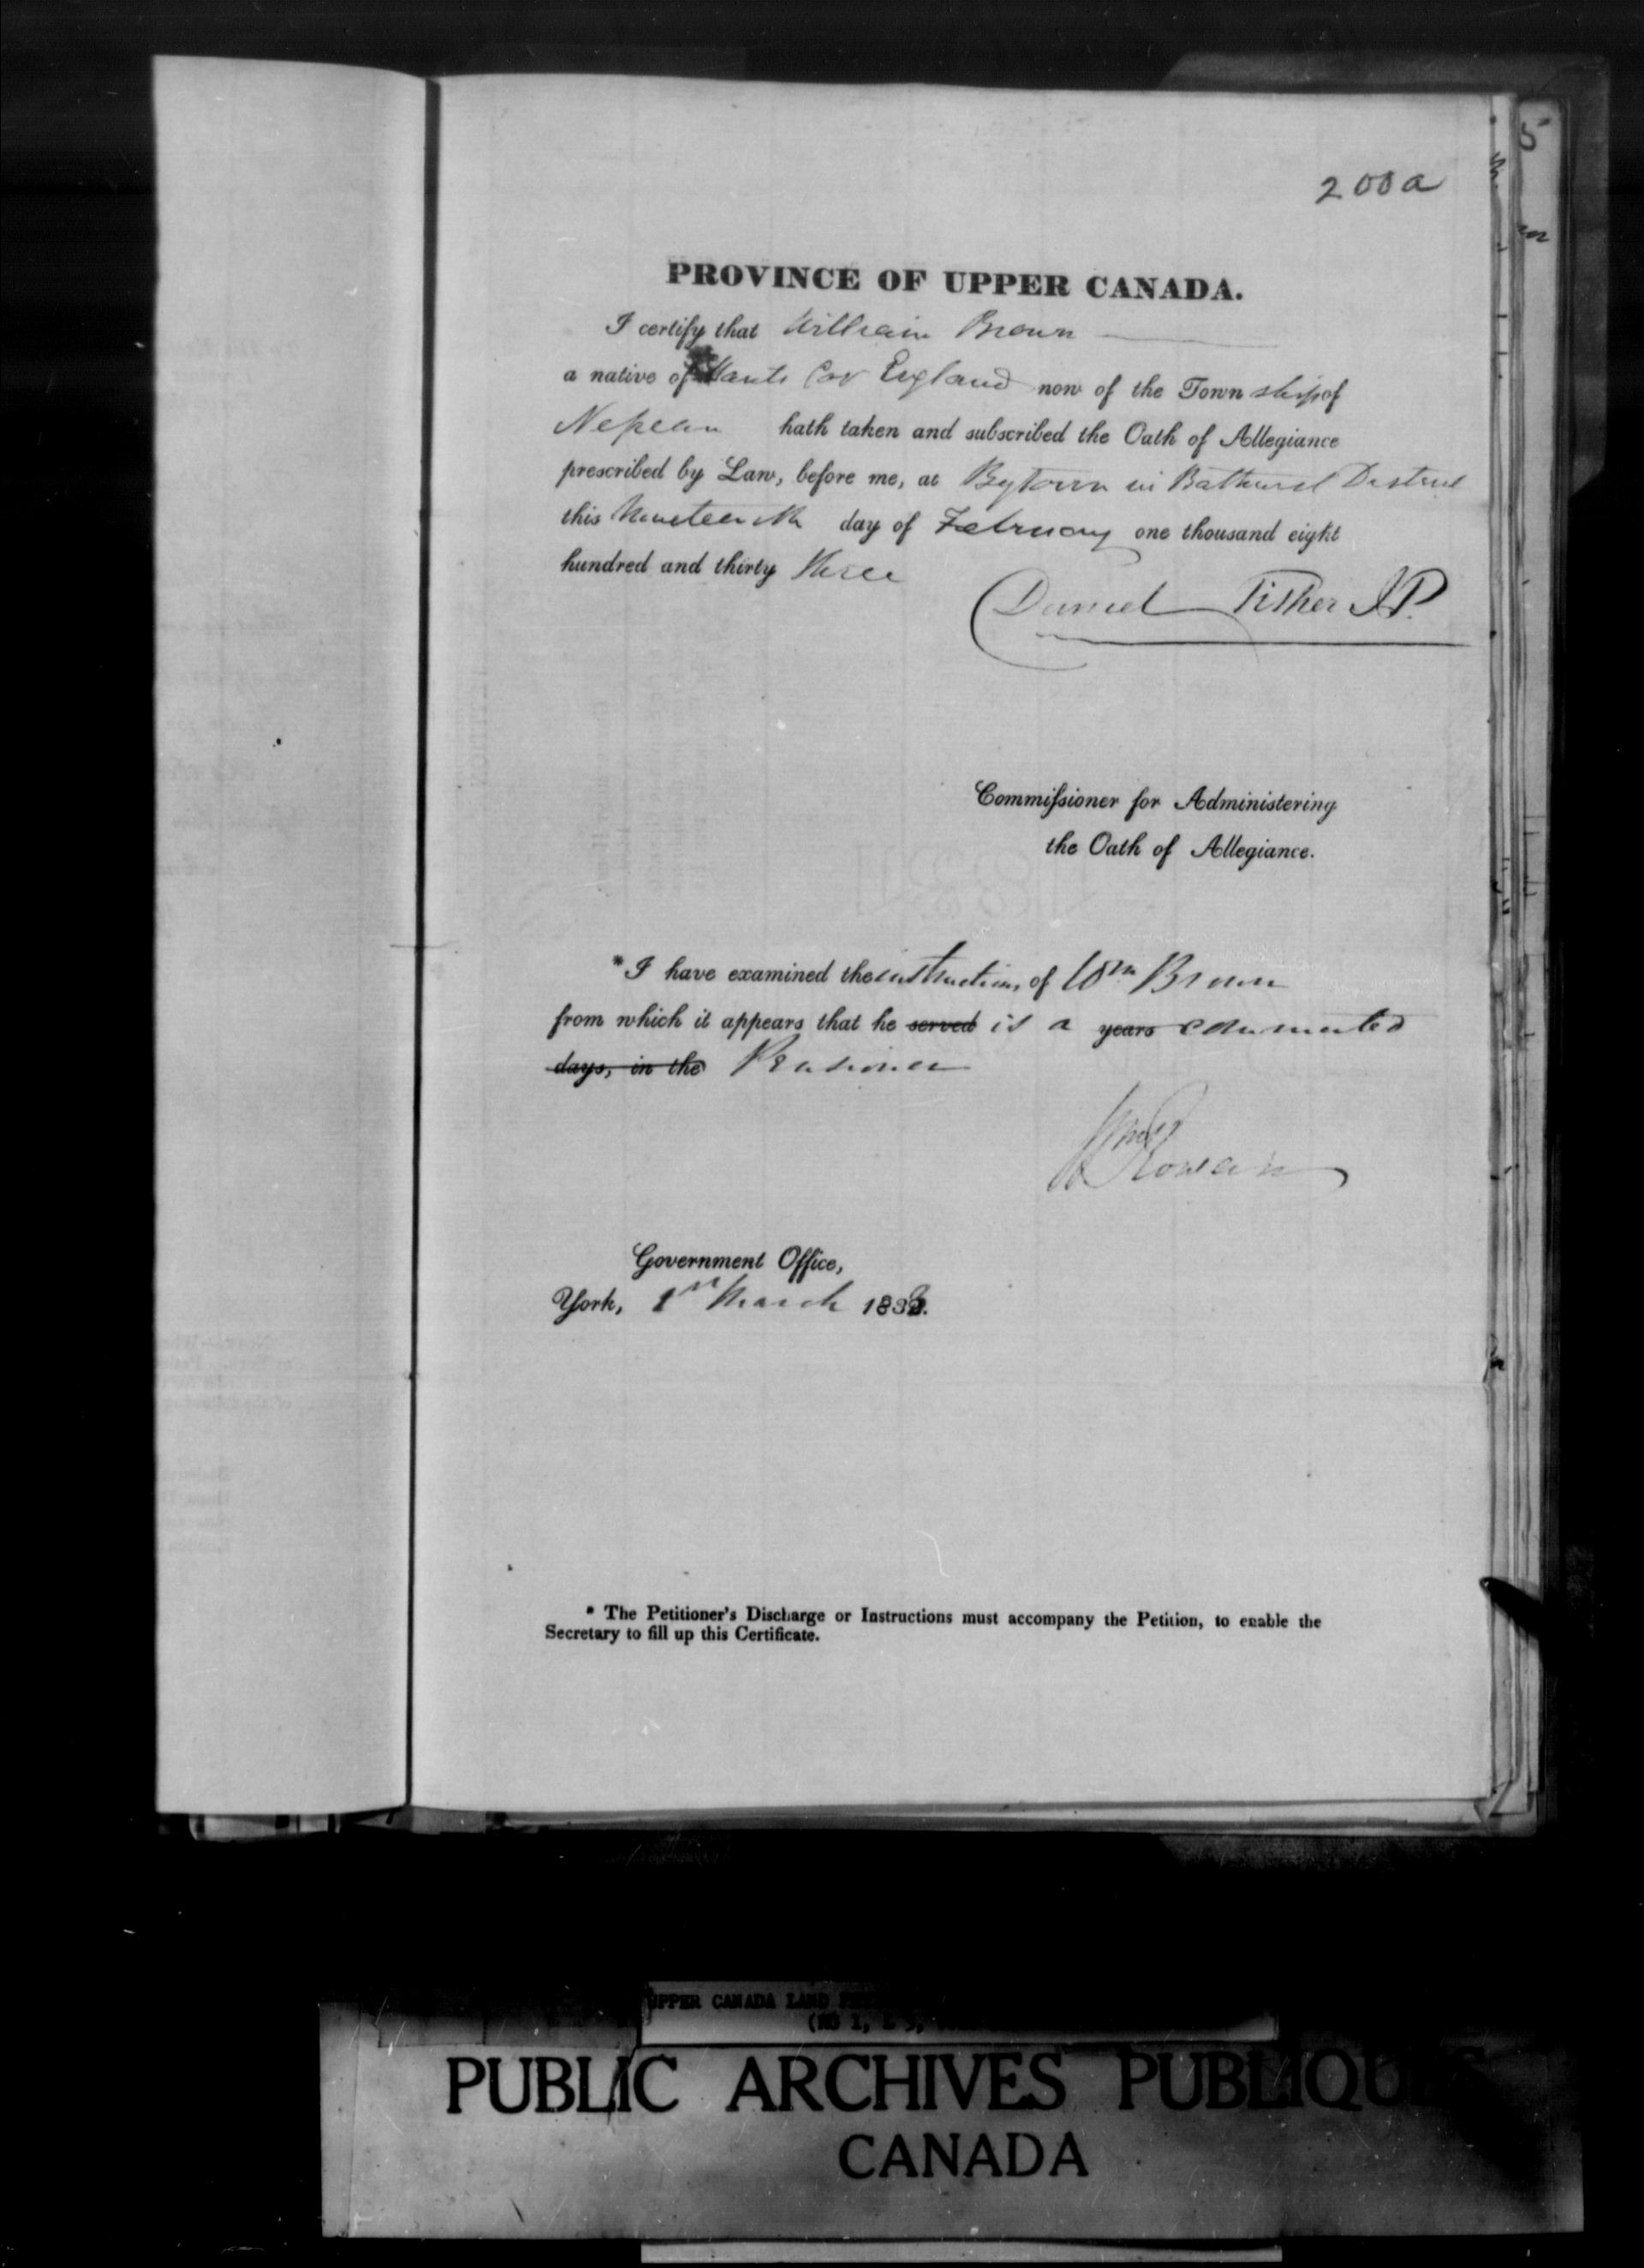 200a
PROVINCE OF UPPER CANADA.
I certify that William Brown
a native of Hants Cor England now of the Town ship of
Nepean hath taken and subscribed the Oath of Allegiance
prescribed by Law, before me, at Bytown in Bathurst District
this Nineteenth day of February one thousand eight
hundred and thirty three
Daniel Fisher JP.
Commissioner for Administering
the Oath of Allegiance.
*I have examined the instructions of Wm Brown
from which it appears that he served is a years commuted
days, in the Pensioner
Wm Rowan
Government Office,
York, 1st March 1833.
* The Petitioner's Discharge or Instructions must accompany the Petition, to enable the
Secretary to fill up this Certificate.
UPPER CANADA LAND
PUBLIC ARCHIVES PUBLIQUES
CANADA